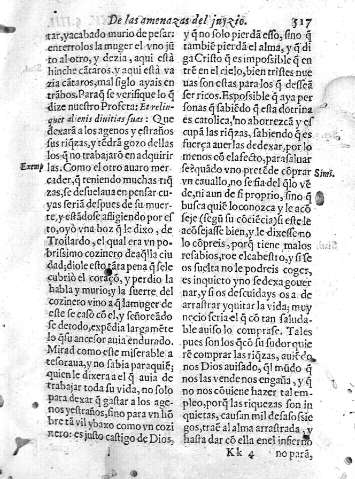 De las amenazas del juyzio. 317
tar, y acabado murio de pesar:
enterrolos la muger el vno jũ
to al otro, y dezia, aqui està
hinche cãtaros: y aqui està va
zia cãtaros, mal siglo ayais en
trãbos. Para q̃ se verifique lo q̃
dize nuestro Profeta: Et relin-
quet alienis diuitias suas: Que
dexarà a los agenos y estraños
sus riqzas, y tẽdrà gozo dellas
los q̃ no trabajarõ en adquirir
Exemp
las. Como el otro auaro mer-
cader, q̃ teniendo muchas riq̃
zas, se desuelaua en pensar cu-
yas seriã despues de su muer-
te, y estãdose afligiendo por es
to, oyò vna boz q̃ le dixo, de
Troilardo, el qual era vn po-
brissimo cozinero dela ciu
dad; diole esto tãta pena q̃ se le
cubriò el coraçõ, y perdio la
habla y murio; y la suerte del
cozinero vino a q̃ la muger de
este se casò cõ el, y señoreãdo
se de todo, expẽdia largamẽte
lo q̃ su ancesor auia endurado.
Mirad como este miserable a
tesoraua, y no sabia paraquiẽ;
quien le dixera a el q̃ auia de
trabajar toda su vida, no solo
para dexar q̃ gastar a los age-
nos y estraños, sino para vn hõ
bre tã vil y baxo como vn cozi
nero: es justo castigo de Dios,
y q̃ no solo pierdã esso, sino q̃
tambiẽ pierdã el alma, y q̃ di
ga Cristo q̃ es impossible q̃ en
trẽ en el cielo, bien tristes nue
uas son estas para los q̃ dessẽã
ser ricos. Es possible q̃ aya per
sonas q̃ sabiẽdo q̃ esta dotrina
es catolica, no aborrezcã y es
cupã las riqzas, sabiendo q̃ es
fuerça auerlas de dexar, por lo
menos cõ el afecto, para saluar
Simi.
se? quãdo vno pretẽde cõprar
vn cauallo, no se fia del q̃ lo vẽ
de, ni aun de si proprio, sino q̃
busca quiẽ lo conozca y le acõ
seje (segũ su cõciẽcia) si este le
acõseja sse bien, y le dixesse no
lo cõpreis, porq̃ tiene malos
resabios, roe el cabestro, y si se
os suelta no le podreis coger,
es inquieto y no se dexa gouer
nar, y si os descuidays os a de
arrastrar y quitar la vida; muy
necio seria el q̃ cõ tan saluda-
ble auiso lo comprase. Tales
pues son los q̃ cõ su sudor quie
rẽ comprar las riqzas, auiẽdo
nos Dios auisado, q̃l mũdo q̃
nos las vende nos engaña, y q̃
no nos cõuiene hazer tal em-
pleo, porq̃ las riquezas son in
quietas, causan mil desasossie
gos, traẽ al alma arrastrada, y
hasta dar cõ ella en el infierno
Kk 4 no parã,